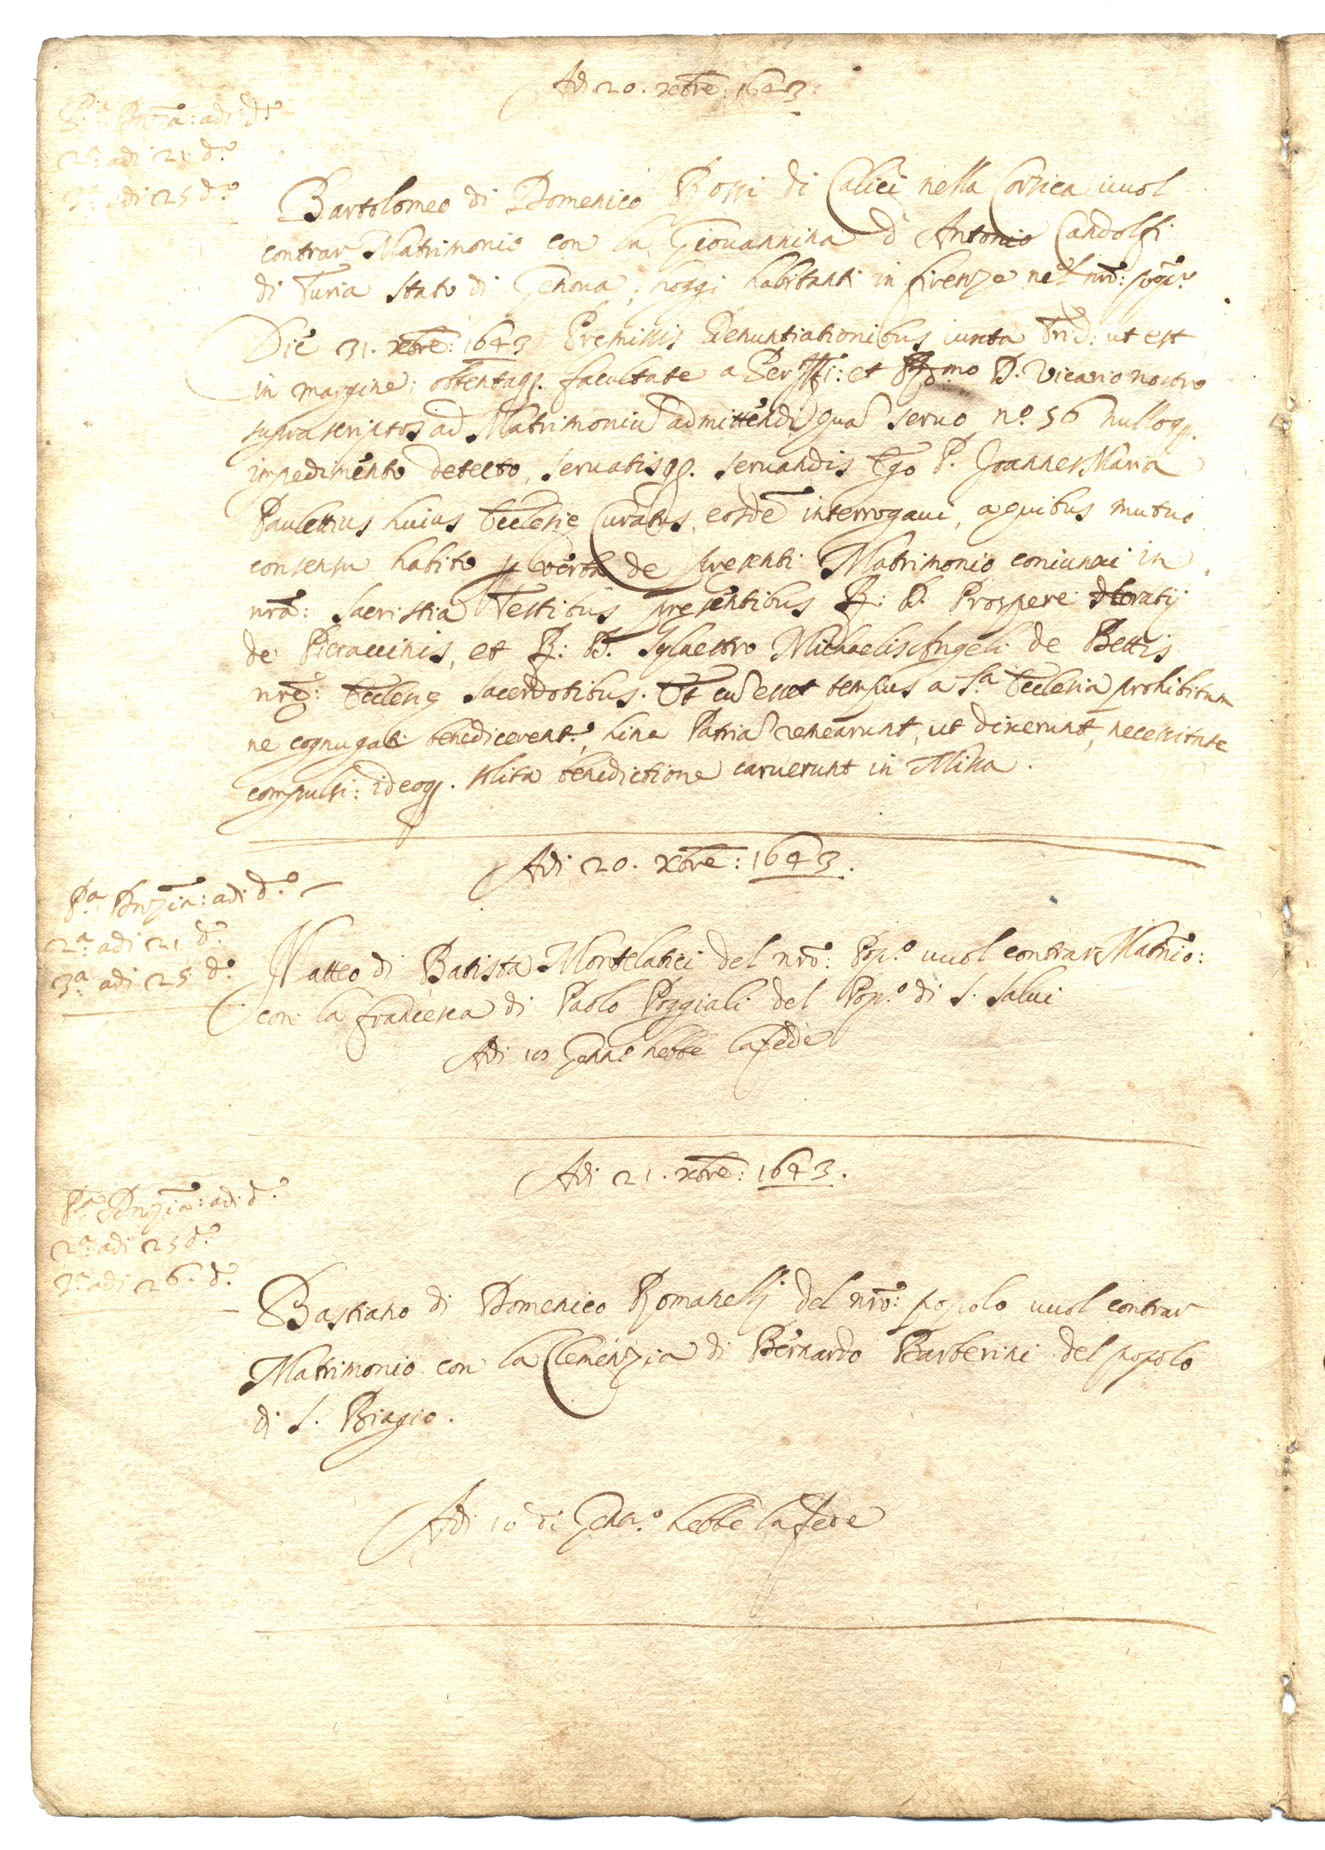 Adi 20. xbre: 1643.
Pa. Dnza: adi do
2a. adi 21 do.
3a. adi 25 do.
Bartolomeo di Domenico Rossi di Calici nella Corsica vuol
contrar Matrimonio con la Giovannina d Antonio Candolfi
di Turia stato di Genova, hoggi habitanti in firenze nel nro: popo.
Die 31. xbre: 1643 Premissis Denuntiationibus iuxta Trid: ut est
in margine: obtentaq. facultate a Per et mo D. Vicario nostro
suprascriptos ad Matrimoniu admittendi qua servo no. 56 nulloq.
impedimento detecto, servatisq. servandis Ego P. Joannes Maria
Paulettius huius Ecclesie Curatus, eosde interrogavi, a quibus mutuo
consensu habito p verba de presenti Matrimonio coniunxi in
nra: Sacristia Testibus presentibus R: D. Prospero Horatij
de Pieraccinis, et R: D. Sylvestro Michaelis Angeli de Bettis
nre: Ecclesie Sacerdotibus. Et cu esset tempus a Sa. Ecclesia prohibitum
ne cognugati benedicerent, hinc Patria remearunt, ut dixerunt, necessitate
compulsi: ideoq. solita benedictione caruerunt in Missa.
Adi 20. xbre: 1643.
Pa. Dnzia: adi do.
2a. adi 21 do.
3a. adi 25 do.
Matteo di Batista Mortelatici del nro: Popo. vuol contrar Matrio:
con la francesca di Paolo Poggiali del Popo. di S. Salvi
Adi 10 Genno. hebbe la fede
Adi 21. xbre: 1643.
Pa. Dnzia: adi do.
2a. adi 25 do.
3a. adi 26. do.
Bastiano di Domenico Romanelli del nro: popolo vuol contrar
Matrimonio con la Clemenzia di Bernardo Barberini del popolo
di S. Biagio.
Adi 10 di Genno. hebbe la fede